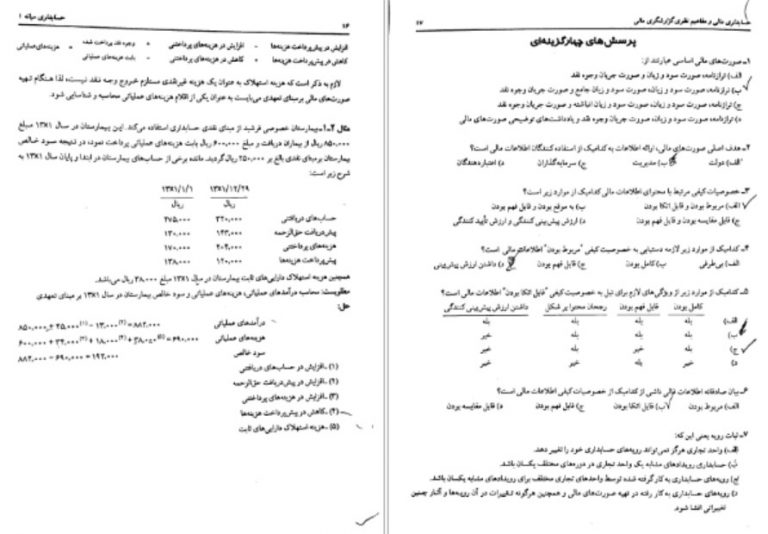 ۱۶ حسابداری میانه ۱
افزایش در پیش‌پرداخت هزینه‌ها - افزایش در هزینه‌های پرداختنی + وجوه نقد پرداخت شده = هزینه‌های عملیاتی
کاهش در پیش‌پرداخت هزینه‌ها + کاهش در هزینه‌های پرداختنی - بابت هزینه‌های عملیاتی
لازم به ذکر است که هزینه استهلاک به عنوان یک هزینه غیرنقدی مستلزم خروج وجه نقد نیست، لذا هنگام تهیه
صورت‌های مالی برمبنای تعهدی می‌بایست به عنوان یکی از اقلام هزینه‌های عملیاتی محاسبه و شناسایی شود.
مثال ۲-۱- بیمارستان خصوصی فرشید از مبنای نقدی حسابداری استفاده می‌کند. این بیمارستان در سال ۱۳۸۱ مبلغ
۸۵۰٬۰۰۰ ریال از بیماران دریافت و مبلغ ۶۰۰٬۰۰۰ ریال بابت هزینه‌های عملیاتی پرداخت نمود، در نتیجه سود خالص
بیمارستان برمبنای نقدی بالغ بر ۲۵۰٬۰۰۰ ریال گردید. مانده برخی از حساب‌های بیمارستان در ابتدا و پایان سال ۱۳۸۱ به
شرح زیر است:
۱۳۸۱/۱/۱ ۱۳۸۱/۱۲/۲۹
ریال ریال
حساب‌های دریافتنی
پیش‌دریافت حق‌الزحمه ۱۳۰٬۰۰۰ ۱۴۳٬۰۰۰
هزینه‌های پرداختنی ۱۷۰٬۰۰۰ ۲۰۴٬۰۰۰
پیش‌پرداخت هزینه‌ها ۱۳۸٬۰۰۰ ۱۲۰٬۰۰۰
همچنین هزینه استهلاک دارایی‌های ثابت بیمارستان در سال ۱۳۸۱ مبلغ ۳۸٬۰۰۰ ریال می‌باشد.
مطلوبست: محاسبه درآمدهای عملیاتی، هزینه‌های عملیاتی و سود خالص بیمارستان در سال ۱۳۸۱ بر مبنای تعهدی
حل:
درآمدهای عملیاتی ۸۵۰٬۰۰۰ + ۴۵٬۰۰۰ (۱) - ۱۳٬۰۰۰ (۲) = ۸۸۲٬۰۰۰
هزینه‌های عملیاتی ۶۰۰٬۰۰۰ + ۳۴٬۰۰۰ (۳) + ۱۸٬۰۰۰ (۴) + ۳۸٬۰۰۰ (۵) = ۶۹۰٬۰۰۰
سود خالص ۸۸۲٬۰۰۰ - ۶۹۰٬۰۰۰ = ۱۹۲٬۰۰۰
(۱) - افزایش در حساب‌های دریافتنی
(۲) - افزایش در پیش‌دریافت حق‌الزحمه
(۳) - افزایش در هزینه‌های پرداختنی
(۴) - کاهش در پیش‌پرداخت هزینه‌ها
(۵) - هزینه استهلاک دارایی‌های ثابت
حسابداری مالی و مفاهیم نظری گزارشگری مالی ۱۷
پرسش‌های چهارگزینه‌ای
۱- صورت‌های مالی اساسی عبارتند از:
الف) ترازنامه، صورت سود و زیان و صورت جریان وجوه نقد
ب) ترازنامه، صورت سود و زیان، صورت سود و زیان جامع و صورت جریان وجوه نقد
ج) ترازنامه، صورت سود و زیان، صورت سود و زیان انباشته و صورت جریان وجوه نقد
د) ترازنامه، صورت سود و زیان، صورت جریان وجوه نقد و یادداشت‌های توضیحی صورت‌های مالی
۲- هدف اصلی صورت‌های مالی، ارائه اطلاعات به کدامیک از استفاده کنندگان اطلاعات مالی است؟
الف) دولت ب) مدیریت ج) سرمایه‌گذاران د) اعتباردهندگان
۳- خصوصیات کیفی مرتبط با محتوای اطلاعات مالی کدامیک از موارد زیر است؟
الف) مربوط بودن و قابل اتکا بودن ب) به موقع بودن و قابل فهم بودن
ج) قابل مقایسه بودن و قابل فهم بودن د) ارزش پیش‌بینی کنندگی و ارزش تأیید کنندگی
۴- کدامیک از موارد زیر لازمه دستیابی به خصوصیت کیفی "مربوط بودن" اطلاعات مالی است؟
الف) بی‌طرفی ب) کامل بودن ج) قابل فهم بودن د) داشتن ارزش پیش‌بینی
۵- کدامیک از موارد زیر از ویژگی‌های لازم برای نیل به خصوصیت کیفی "قابل اتکا بودن" اطلاعات مالی است؟
کامل بودن قابل فهم بودن رجحان محتوا بر شکل داشتن ارزش پیش‌بینی کنندگی
الف) بله بله بله بله
ب) بله بله بله خیر
ج) بله خیر بله خیر
د) بله خیر خیر بله
۶- بیان صادقانه اطلاعات مالی ناشی از کدامیک از خصوصیات کیفی اطلاعات مالی است؟
الف) مربوط بودن ب) قابل اتکا بودن ج) قابل فهم بودن د) قابل مقایسه بودن
۷- ثبات رویه یعنی این که:
الف) واحد تجاری هرگز نمی‌تواند رویه‌های حسابداری خود را تغییر دهد.
ب) حسابداری رویدادهای مشابه یک واحد تجاری در دوره‌های مختلف یکسان باشد.
ج) رویه‌های حسابداری به کار گرفته شده توسط واحدهای تجاری مختلف برای رویدادهای مشابه یکسان باشد.
د) رویه‌های حسابداری به کار رفته در تهیه صورت‌های مالی و همچنین هرگونه تغییرات در آن رویه‌ها و آثار چنین
تغییراتی افشا شود.